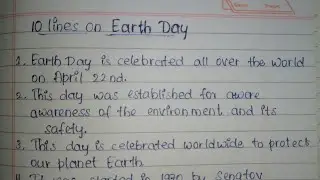 10 lines on Earth Day
1. Earth Day is celebrated all over the world
on April 22nd.
2. This day was established for aware
awareness of the environment and its
safety.
3. This day is celebrated worldwide to protect
our planet Earth.
started in by Senator